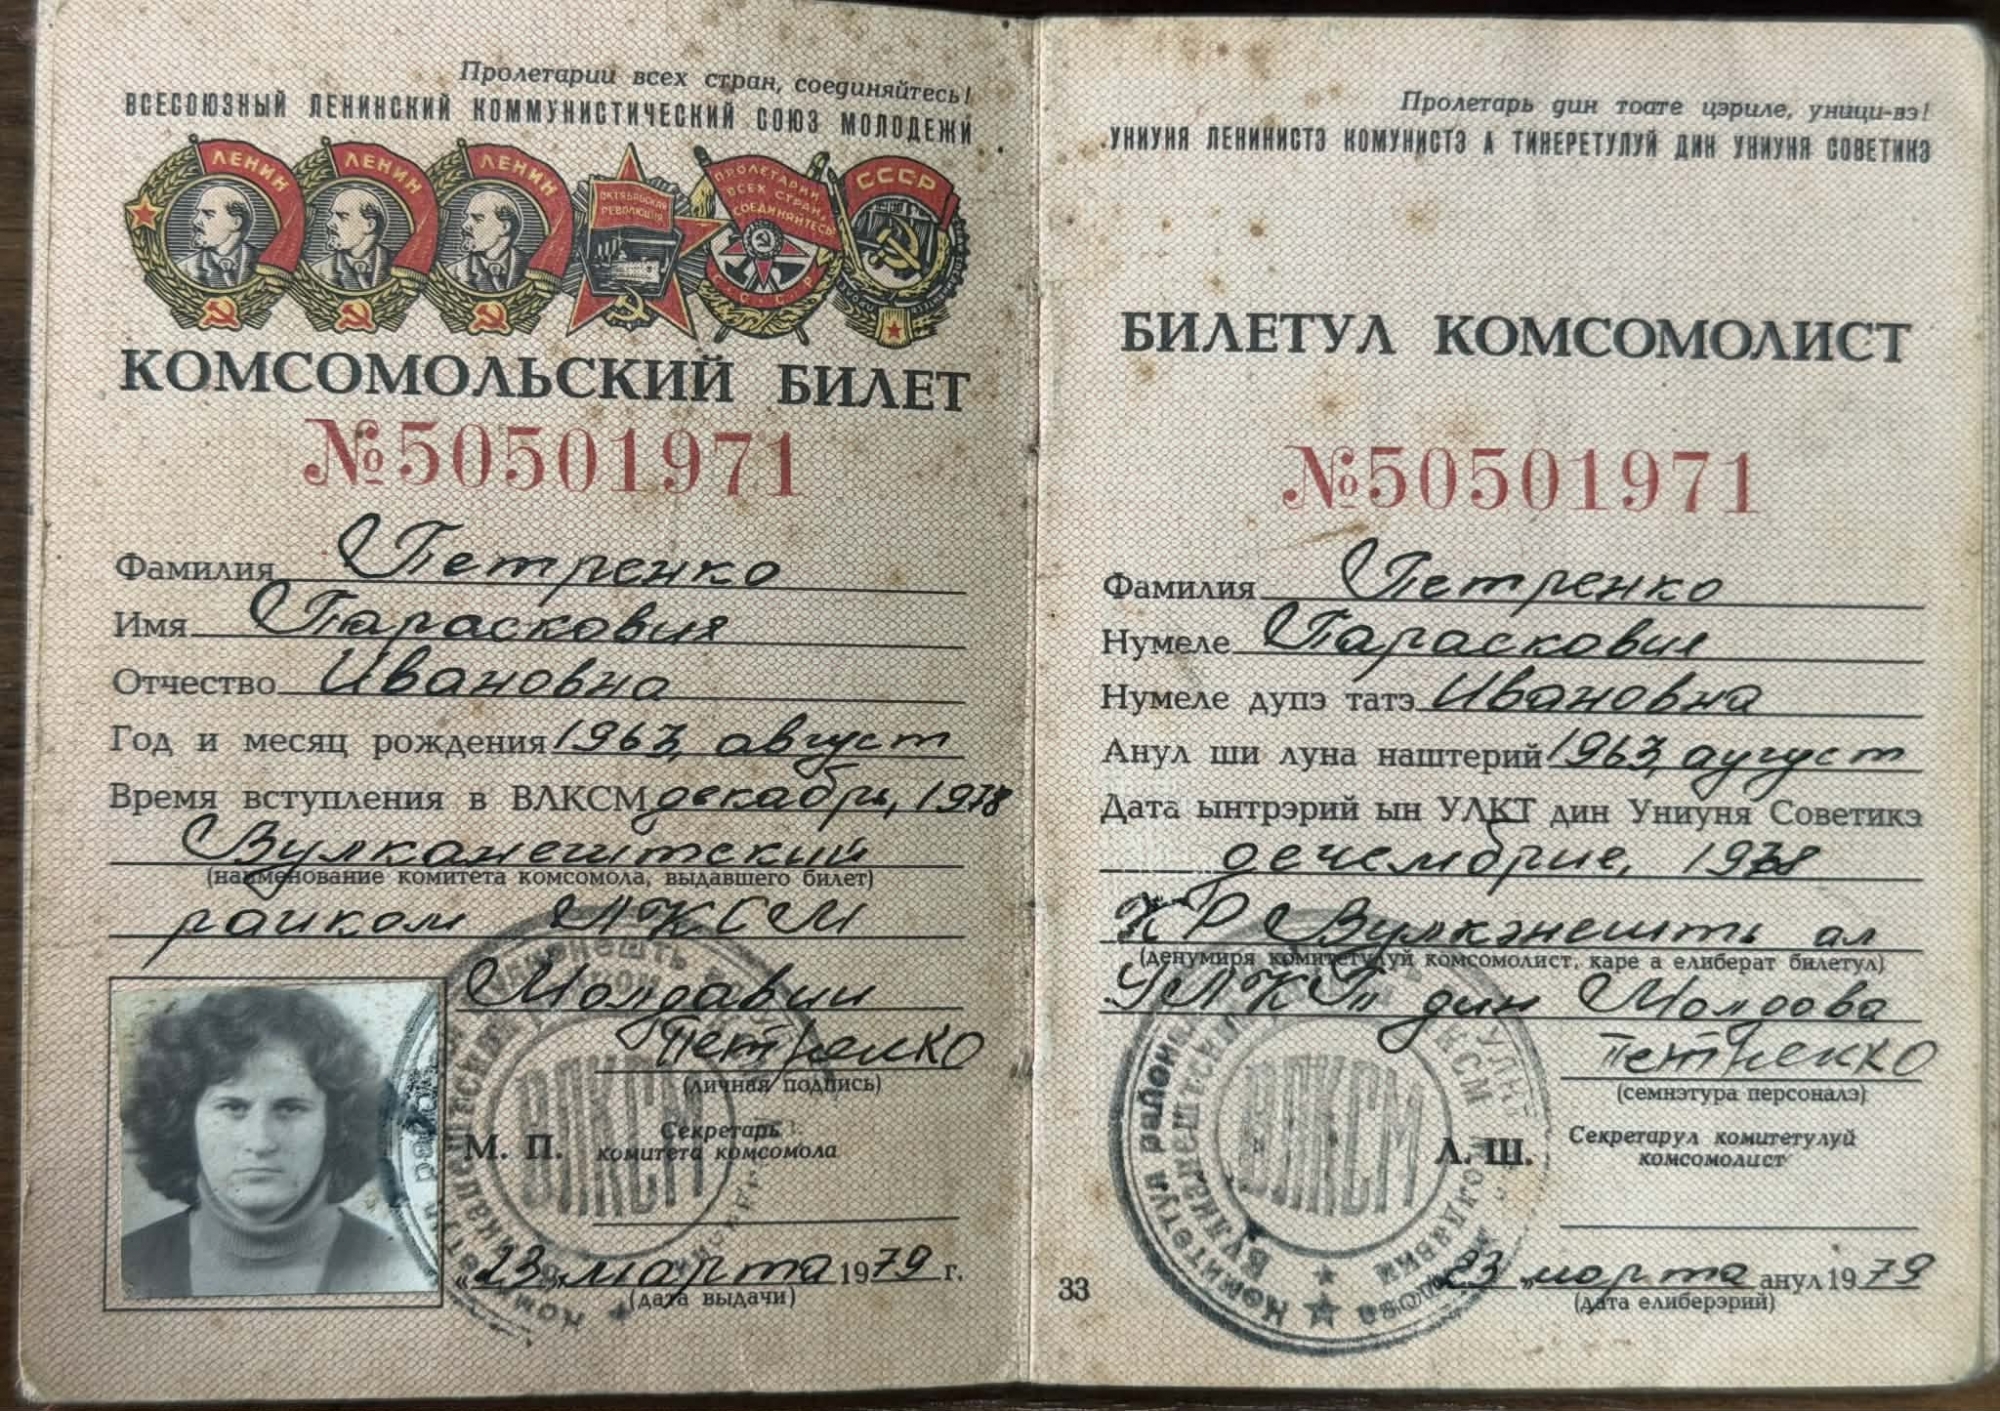 Пролетарии всех стран, соединяйтесь!
ВСЕСОЮЗНЫЙ ЛЕНИНСКИЙ КОММУНИСТИЧЕСКИЙ СОЮЗ МОЛОДЕЖИ
ЛЕНИН
ЛЕНИН
ЛЕНИН
ОКТЯБРЬСКАЯ
РЕВОЛЮЦИЯ
ПРОЛЕТАРИИ
ВСЕХ СТРАН,
СОЕДИНЯЙТЕСЬ
С С С Р
СССР
КОМСОМОЛЬСКИЙ БИЛЕТ
№50501971
Фамилия Петренко
Имя Парасковия
Отчество Ивановна
Год и месяц рождения 1963, август
Время вступления в ВЛКСМ декабрь, 1978
Вулканештский
(наименование комитета комсомола, выдавшего билет)
райком ЛКСМ
Молдавии
Петренко
(личная подпись)
М. П.
Секретарь
комитета комсомола
ВЛКСМ
"23" марта 1979 г.
(дата выдачи)
Пролетарь дин тоате цэриле, уници-вэ!
УНИУНЯ ЛЕНИНИСТЭ КОМУНИСТЭ А ТИНЕРЕТУЛУЙ ДИН УНИУНЯ СОВЕТИКЭ
БИЛЕТУЛ КОМСОМОЛИСТ
№50501971
Фамилия Петренко
Нумеле Парасковия
Нумеле дупэ татэ Ивановна
Анул ши луна наштерий 1963, аугуст
Дата ынтрэрий ын УЛКТ дин Униуня Советикэ
дечембрие, 1978
КР Вулкэнешть ал
(денумиря комитетулуй комсомолист, каре а елиберат билетул)
УЛКТ дин Молдова
Петренко
(семнэтура персоналэ)
Л. Ш.
Секретарул комитетулуй
комсомолист
ВЛКСМ
23 марта анул 1979
(дата елиберэрий)
33